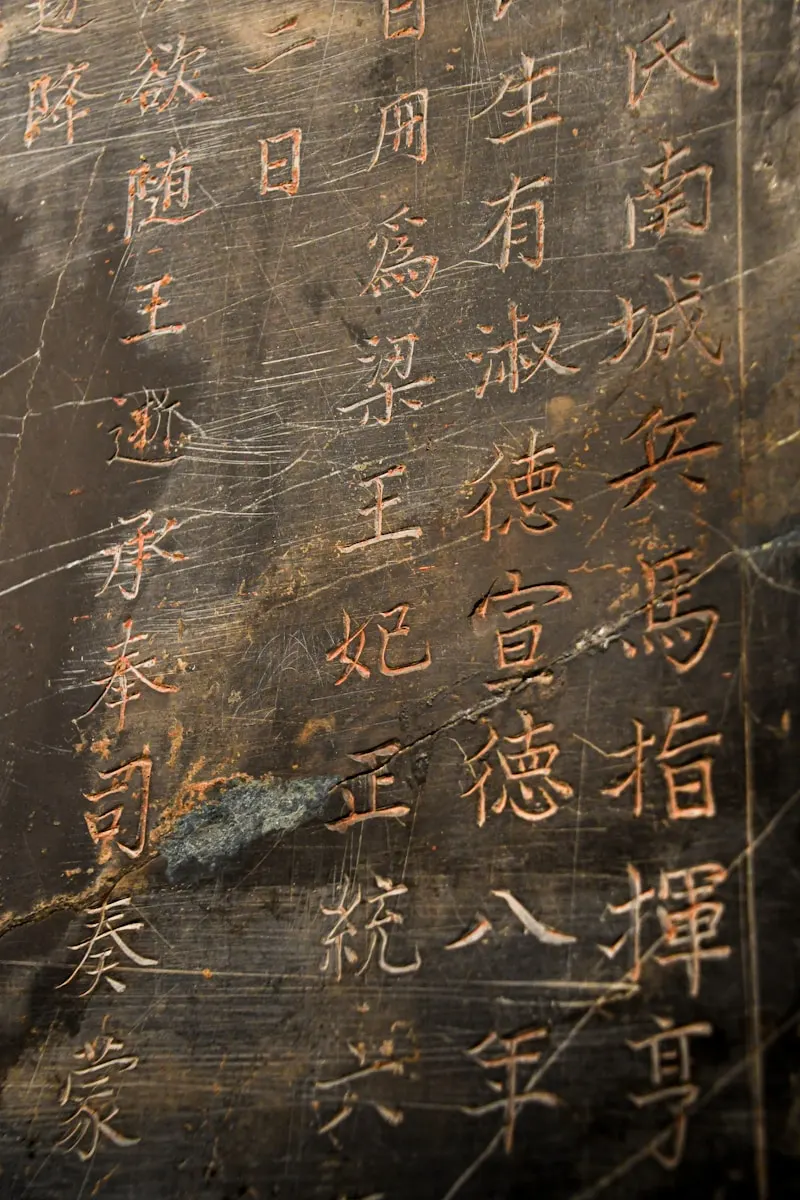 氏南城兵馬指揮亨
生有淑德宣德八年
日冊爲梁王妃正統六
二日
欲隨王逝承奉司奏蒙
降